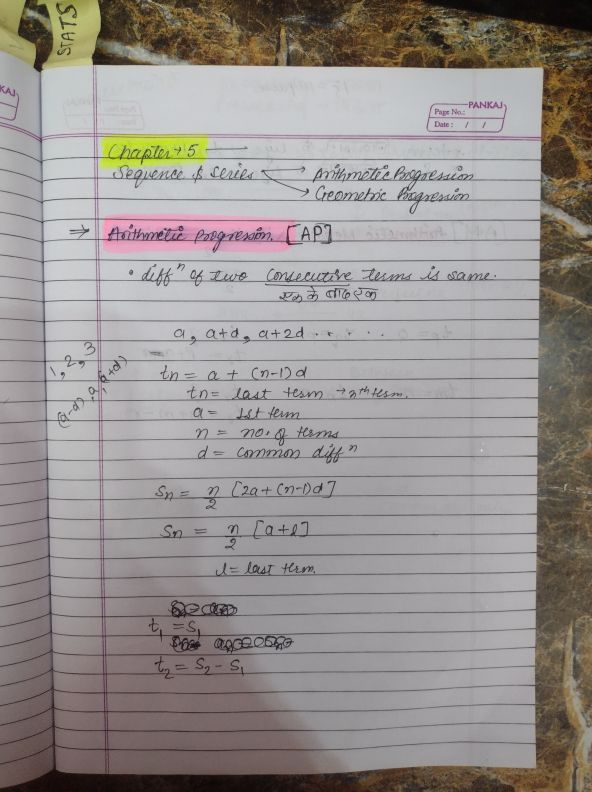 STATS
KAJ
PANKAJ
Page No.:
Date: / /
Chapter → 5
Sequence & series → Arithmetic Progression
→ Geometric Progression
⇒ Arithmetic progression. [AP]
• diffⁿ of two consecutive terms is same.
एक के बाद एक
a, a+d, a+2d ......
1, 2, 3
(a-d), a, (a+d)
tn = a + (n-1)d
tn = last term → nth term.
a = 1st term
n = no. of terms
d = common diffⁿ
Sn = n/2 [2a+(n-1)d]
Sn = n/2 [a+l]
l = last term.
t₁ = S₁
t₂ = S₂ - S₁